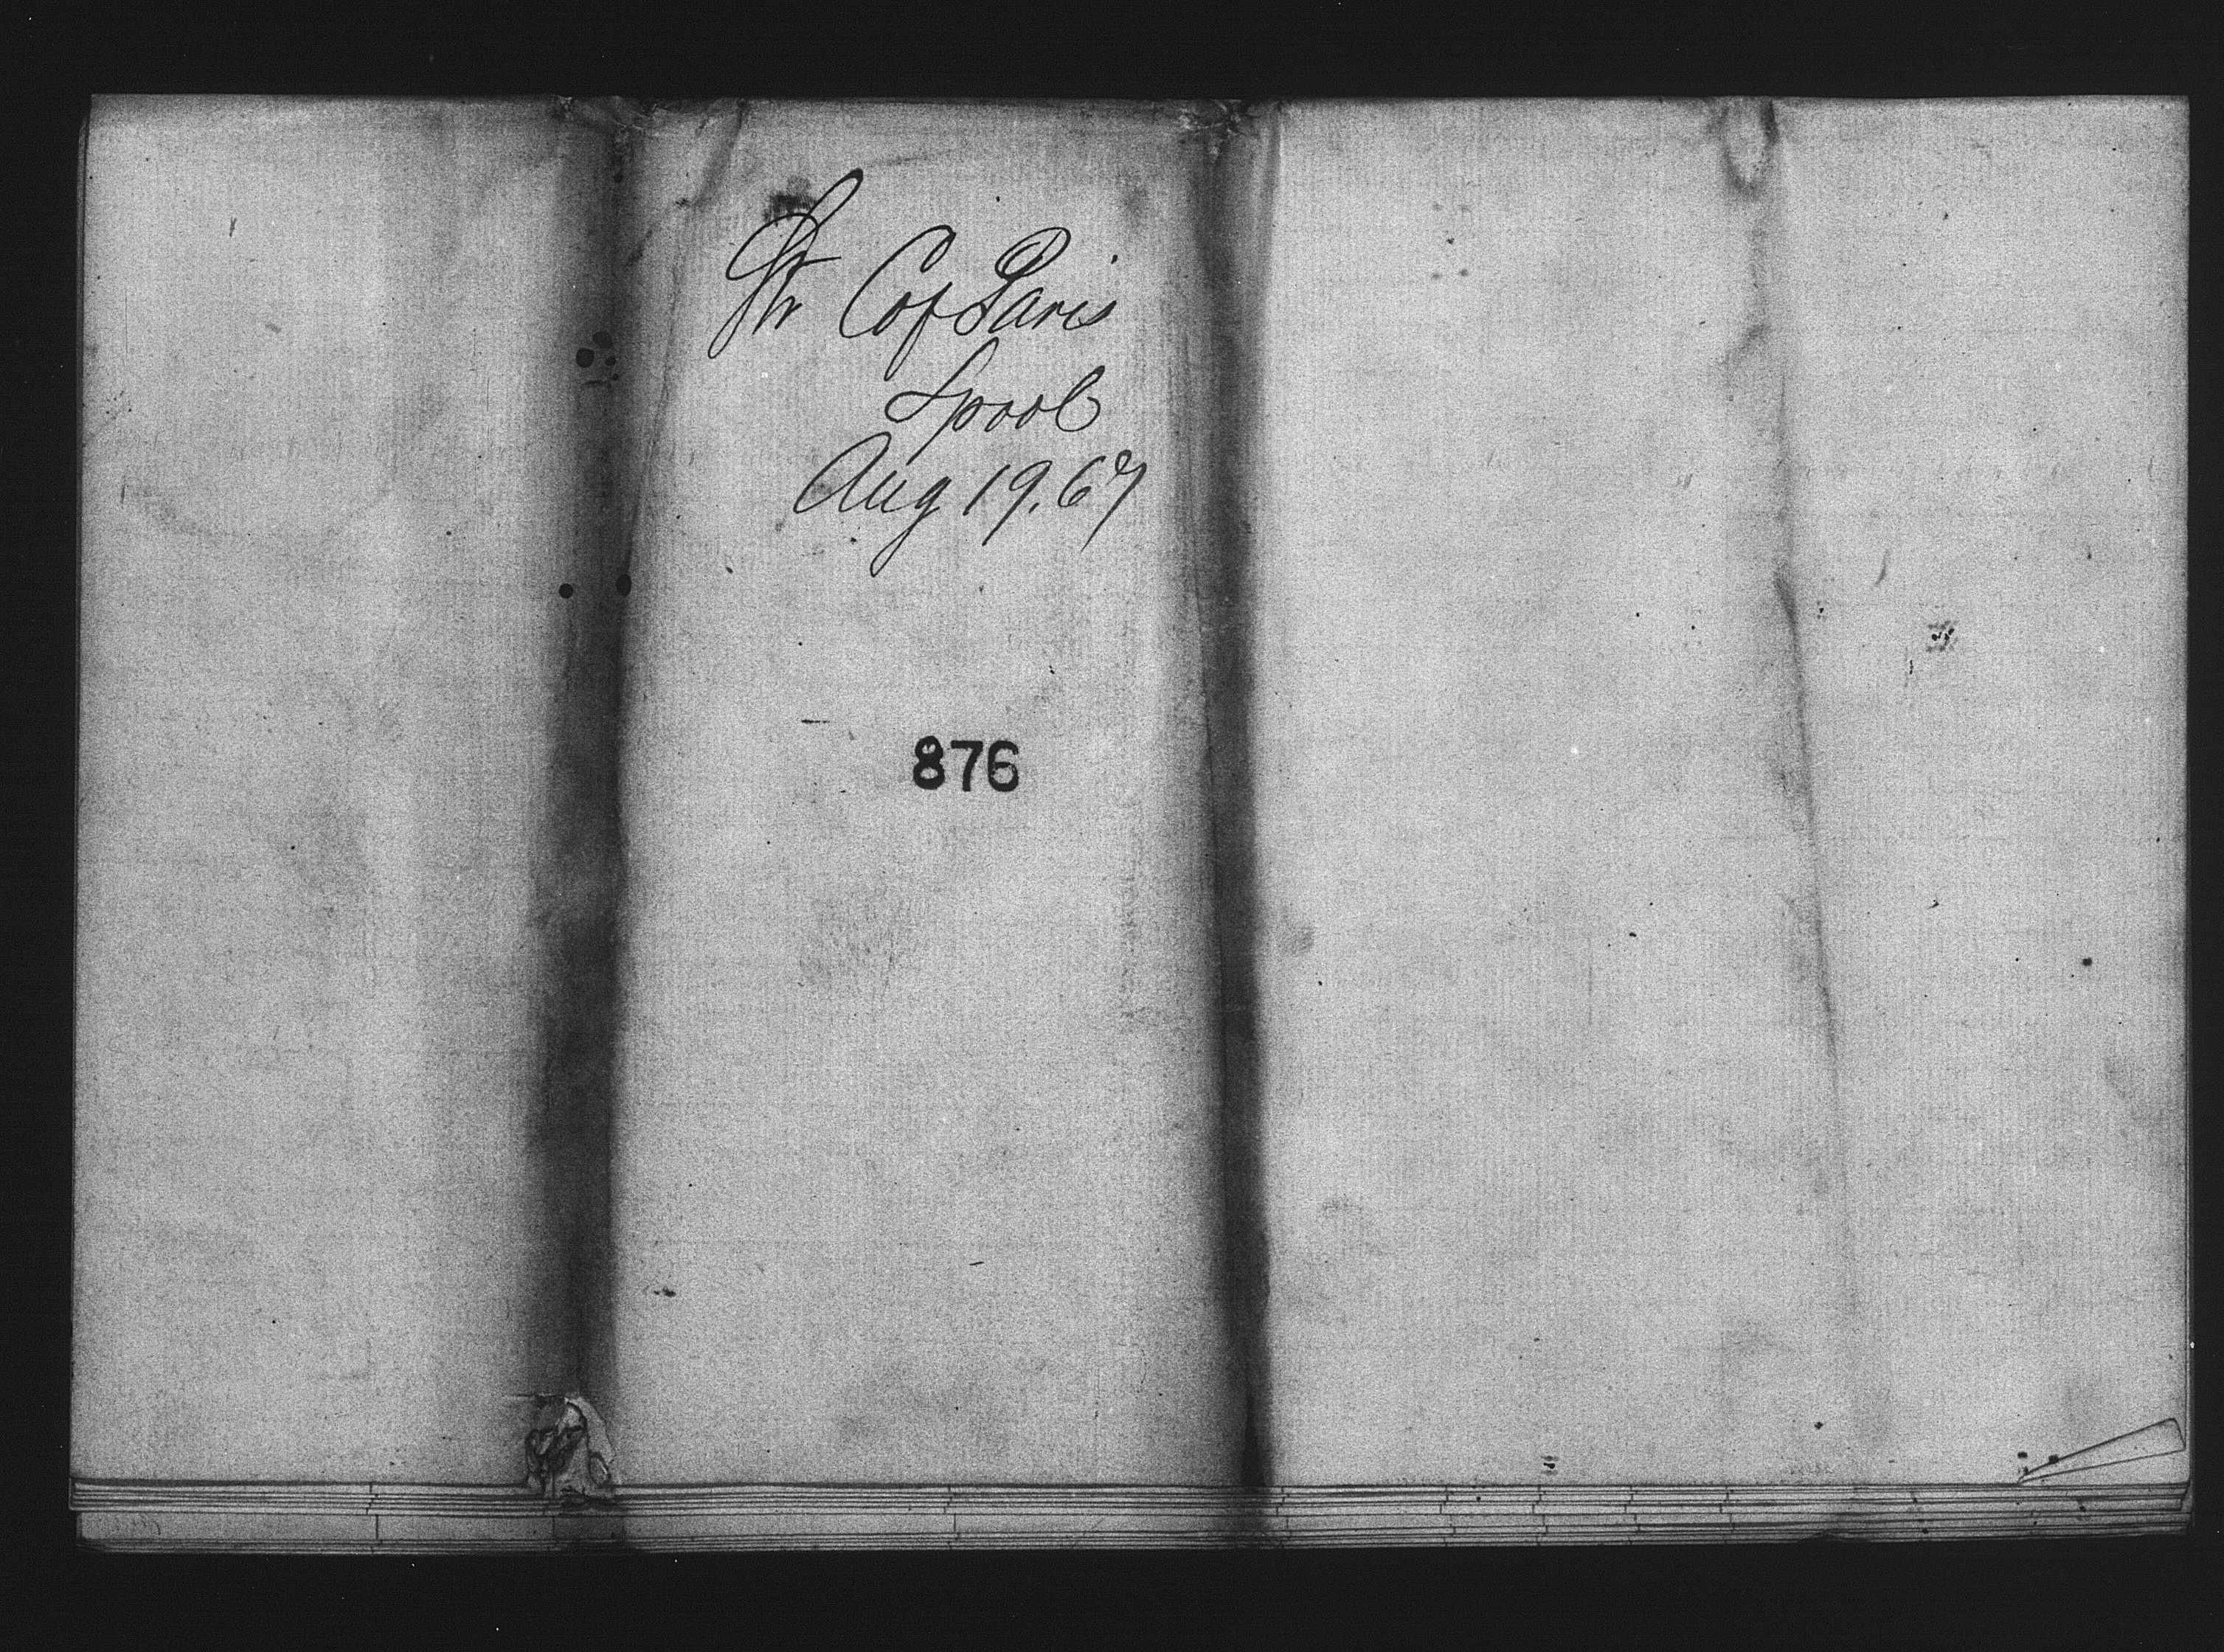 Str C of Paris
Lpool
Aug 19. 67
876